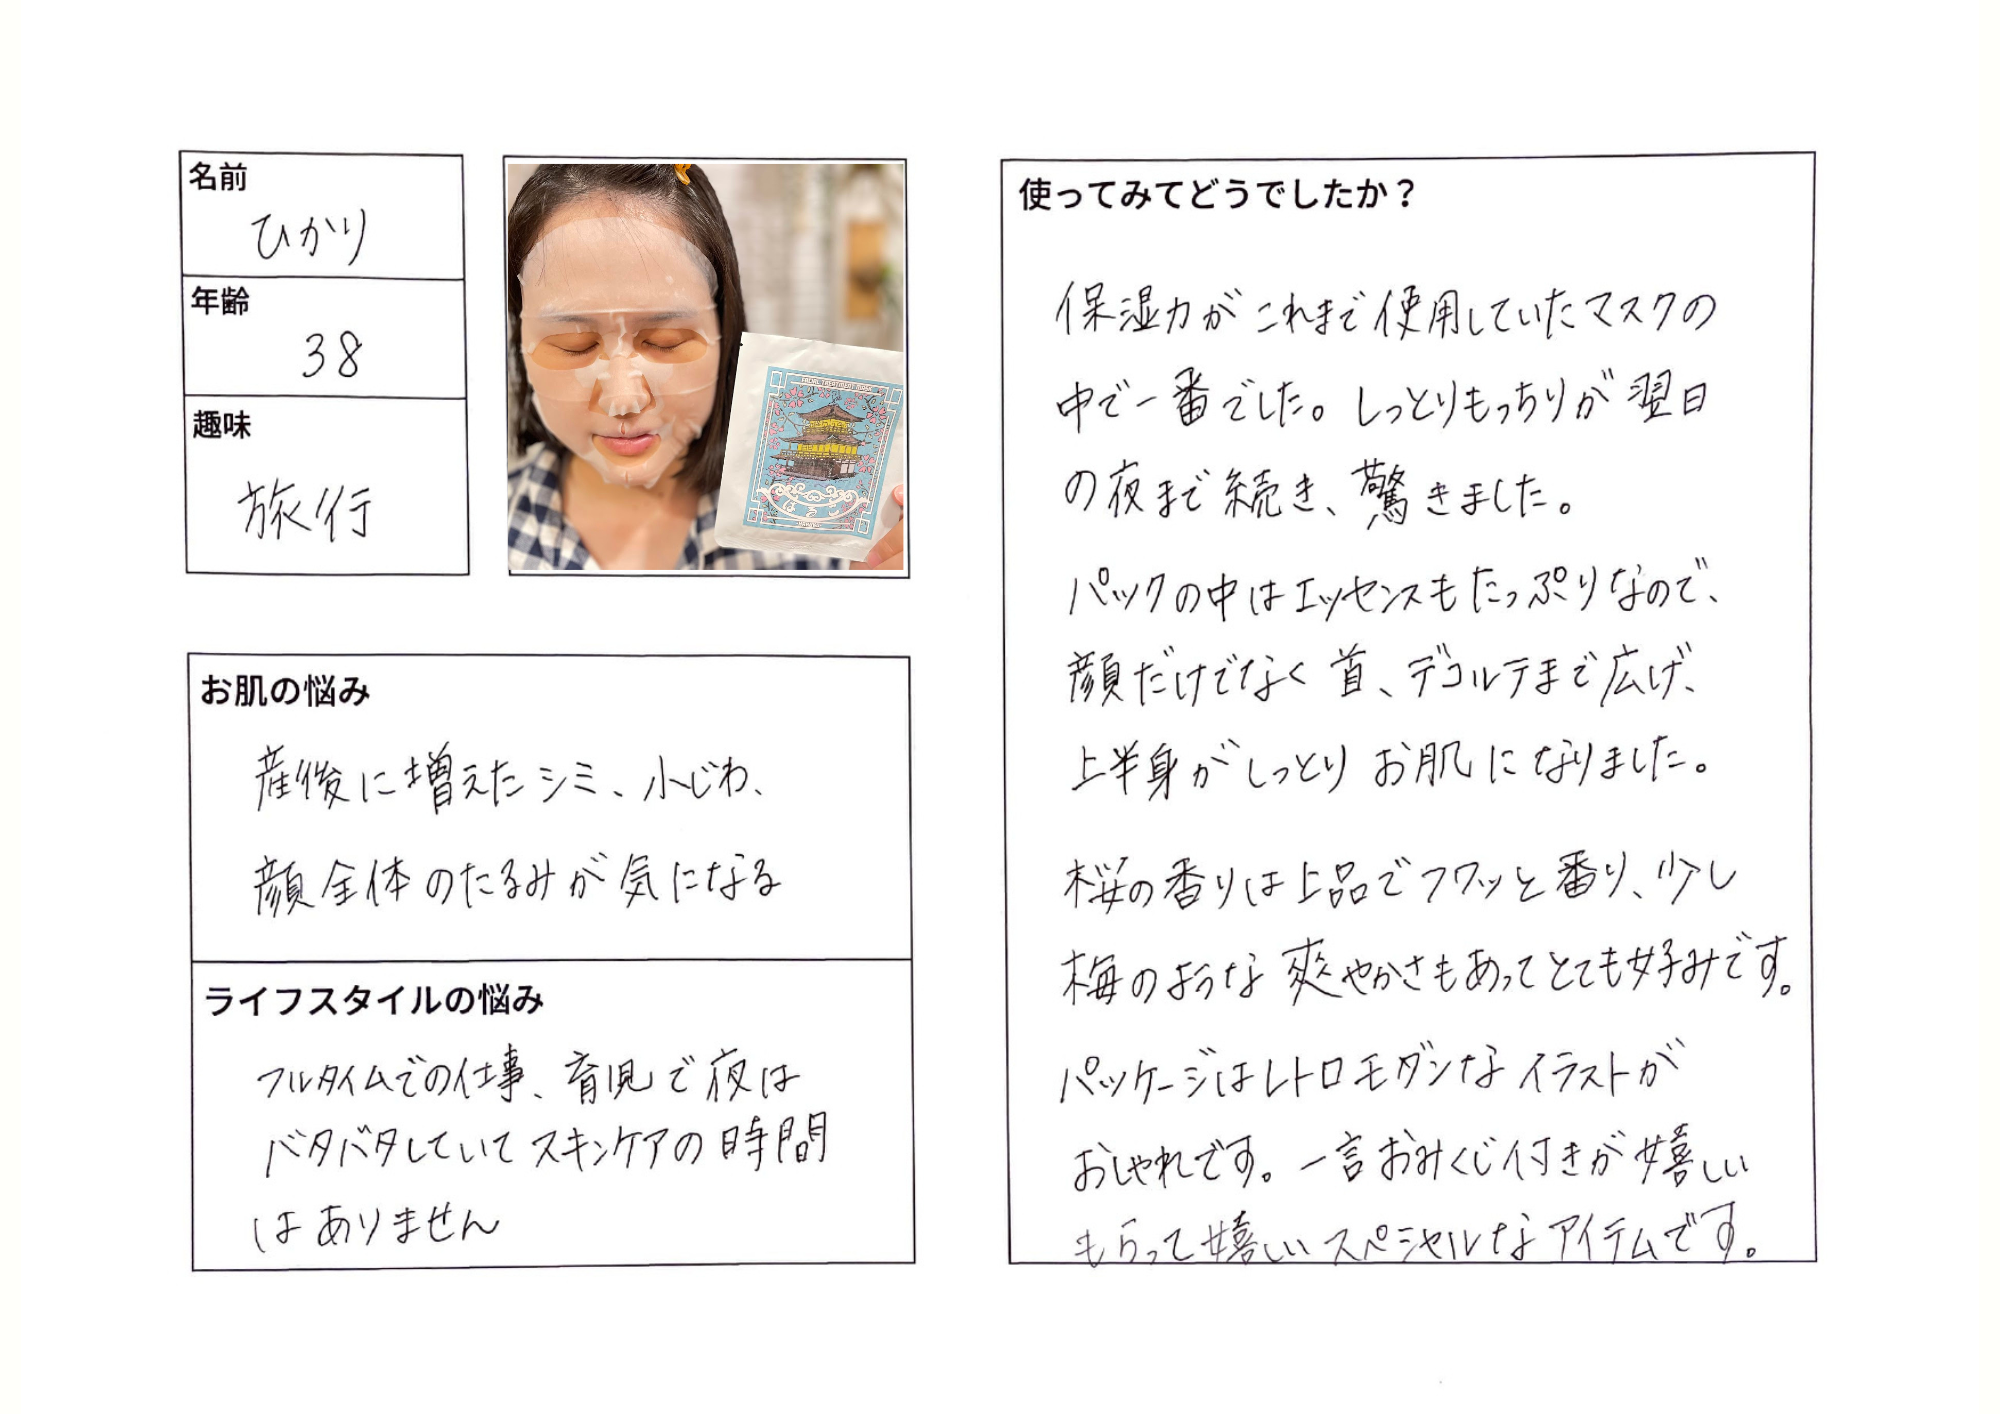 名前
ひかり
年齢
38
趣味
旅行
FACIAL TREATMENT MASK
お肌の悩み
産後に増えたシミ、小じわ、
顔全体のたるみが気になる
ライフスタイルの悩み
フルタイムでの仕事、育児で夜は
バタバタしていてスキンケアの時間
はありません
使ってみてどうでしたか？
保湿力がこれまで使用していたマスクの
中で一番でした。しっとりもっちりが翌日
の夜まで続き、驚きました。
パックの中はエッセンスもたっぷりなので、
顔だけでなく首、デコルテまで広げ、
上半身がしっとりお肌になりました。
桜の香りは上品でフワッと番り、少し
梅のような爽やかさもあってとても好みです。
パッケージはレトロモダンなイラストが
おしゃれです。一言おみくじ付きが嬉しい
もらって嬉しいスペシャルなアイテムです。